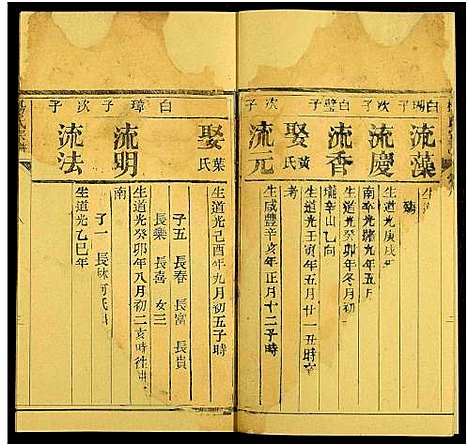 白瑚子 次子
白璧子 次子
流藻
流慶
生道光庚戌
流香
生道光癸卯年冬月
辛山乙向
娶黃氏
生道光壬寅年五月廿一丑時
考
流元
生咸豐辛亥年正月十二子時
白璋子 次子
娶葉氏
生道光己酉年九月初五子時
子五 長春 長富 長貴
長樂 長喜 女三
流明
生道光癸卯年八月初二亥時往
南
子一 長
流法
生道光乙巳年